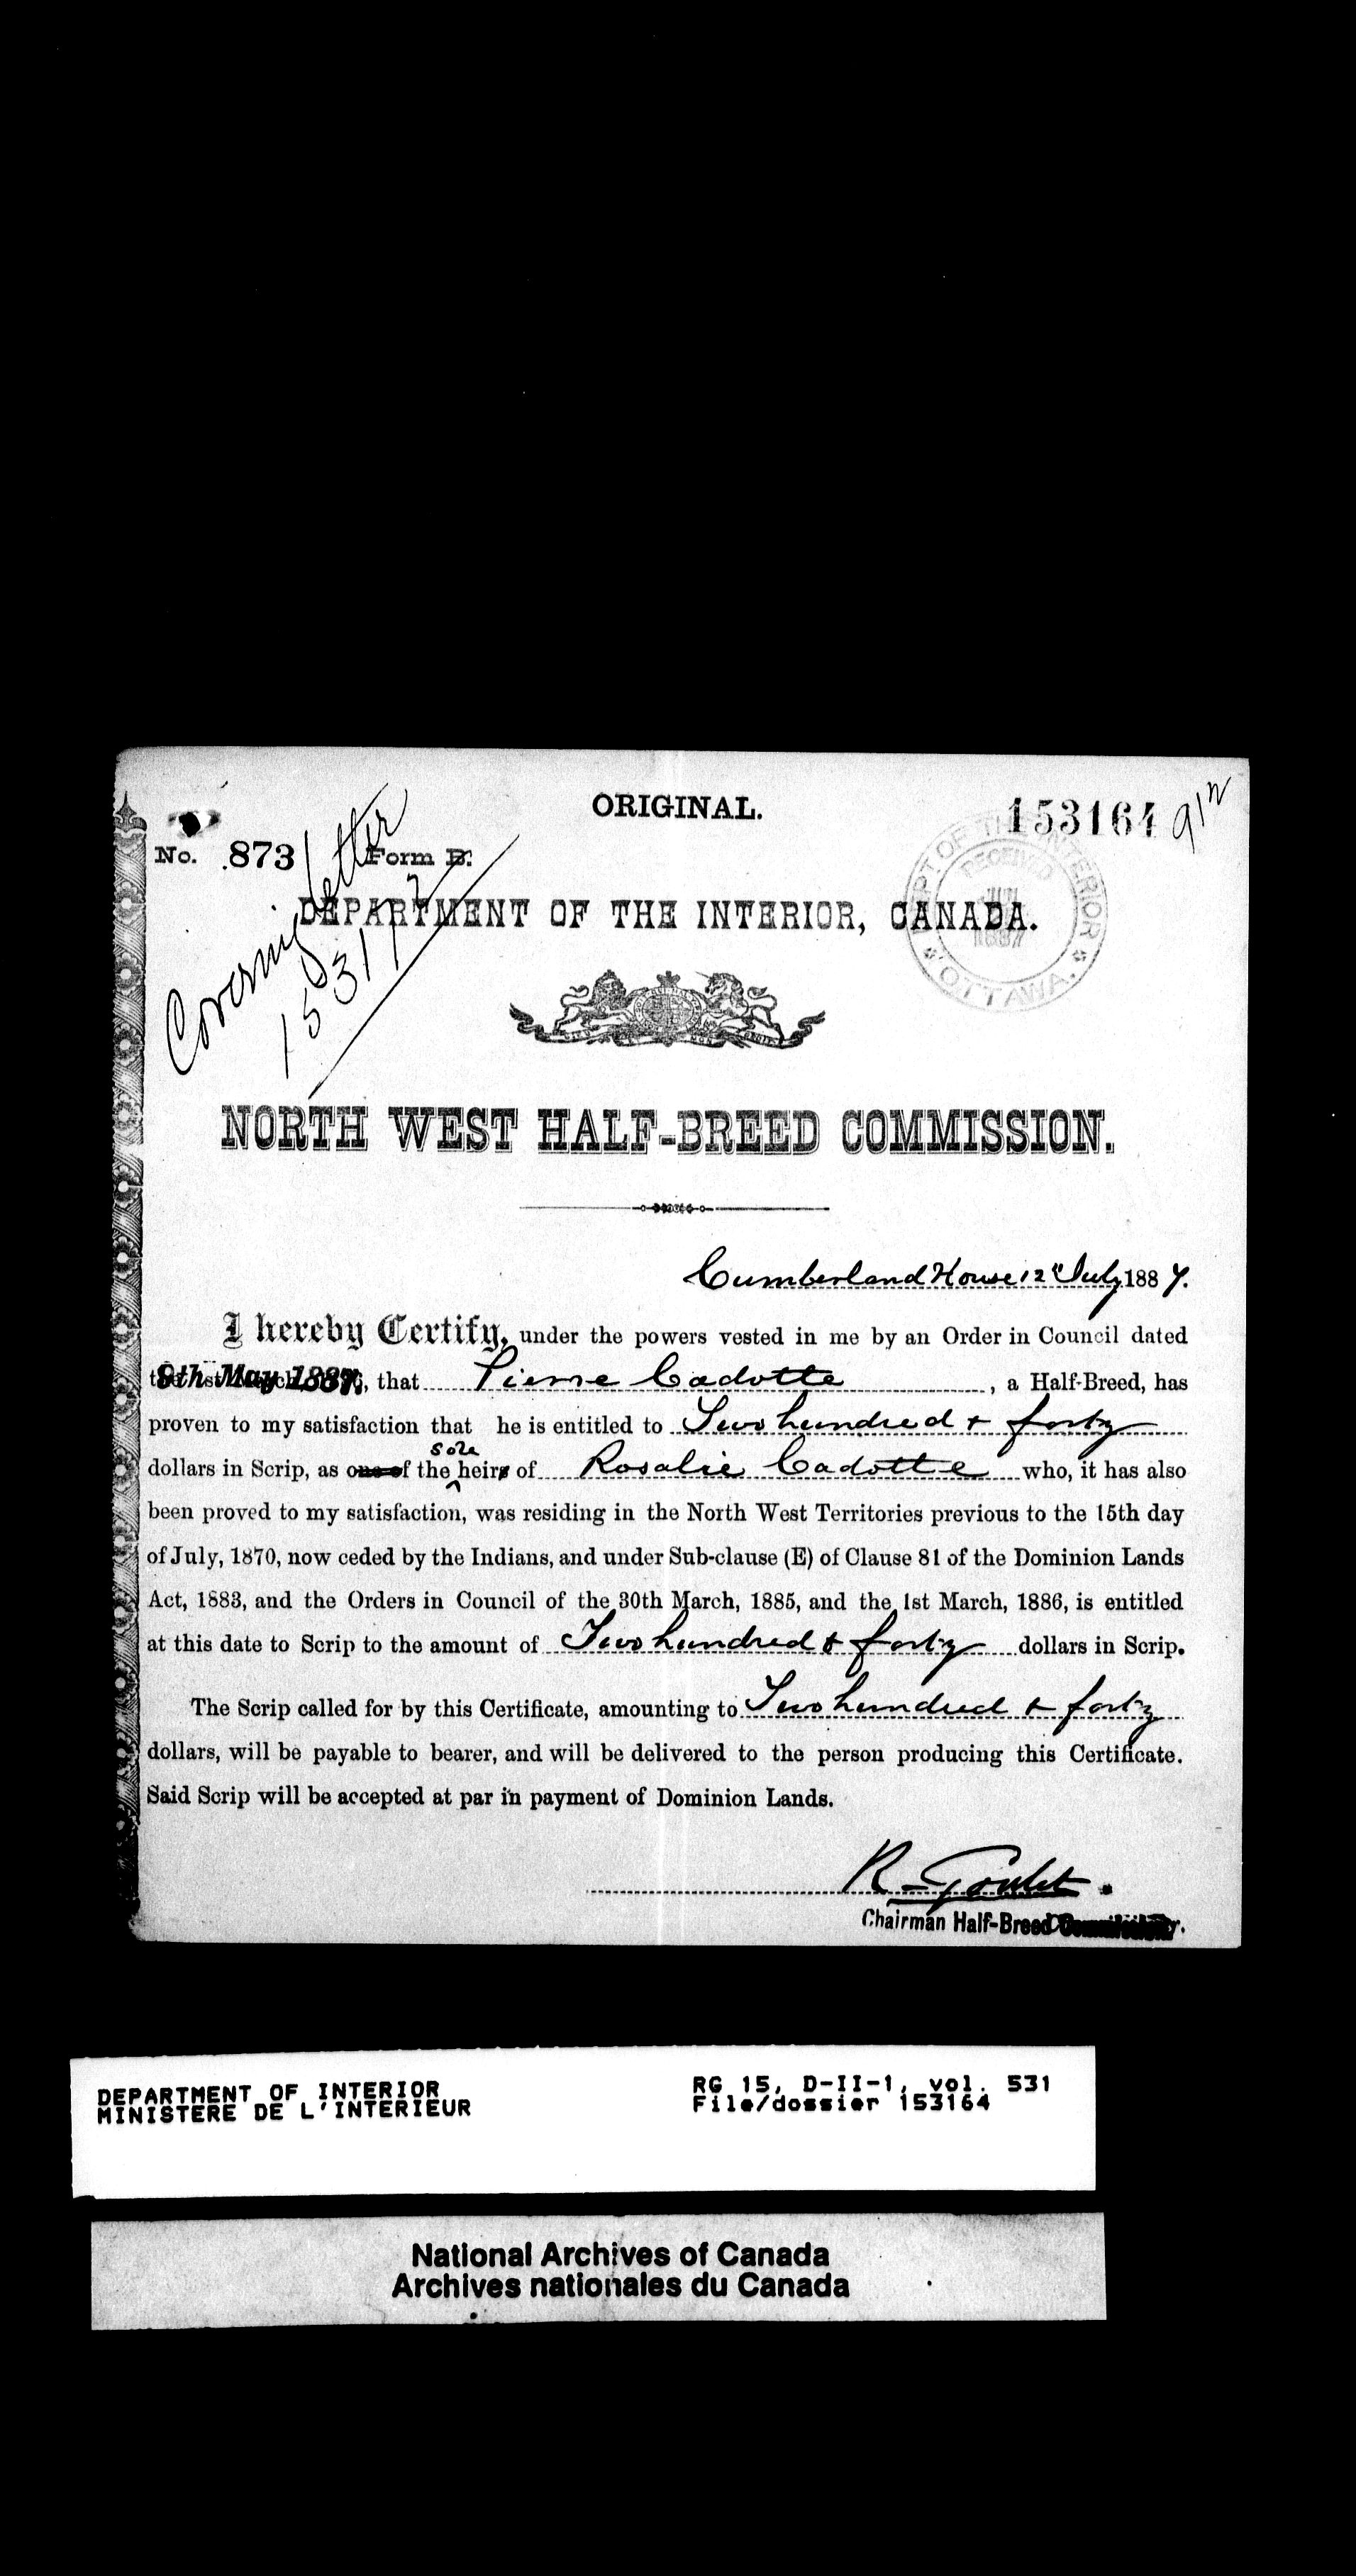 ORIGINAL.
153164
912
No. 873 Form B.
Covering letter
153172
DEPARTMENT OF THE INTERIOR, CANADA.
DEPT. OF THE INTERIOR
RECEIVED
1887
OTTAWA.
NORTH WEST HALF-BREED COMMISSION.
Cumberland House 12" July 1887.
I hereby Certify, under the powers vested in me by an Order in Council dated
9th May 1887, that Pierre Cadotte, a Half-Breed, has
proven to my satisfaction that he is entitled to Two hundred & forty
sole
dollars in Scrip, as one of the heirs of Rosalie Cadotte who, it has also
been proved to my satisfaction, was residing in the North West Territories previous to the 15th day
of July, 1870, now ceded by the Indians, and under Sub-clause (E) of Clause 81 of the Dominion Lands
Act, 1883, and the Orders in Council of the 30th March, 1885, and the 1st March, 1886, is entitled
at this date to Scrip to the amount of Two hundred & forty dollars in Scrip.
The Scrip called for by this Certificate, amounting to Two hundred & forty
dollars, will be payable to bearer, and will be delivered to the person producing this Certificate.
Said Scrip will be accepted at par in payment of Dominion Lands.
R. Goulet.
Chairman Half-Breed
DEPARTMENT OF INTERIOR
MINISTERE DE L'INTERIEUR
RG 15, D-II-1, vol. 531
File/dossier 153164
National Archives of Canada
Archives nationales du Canada